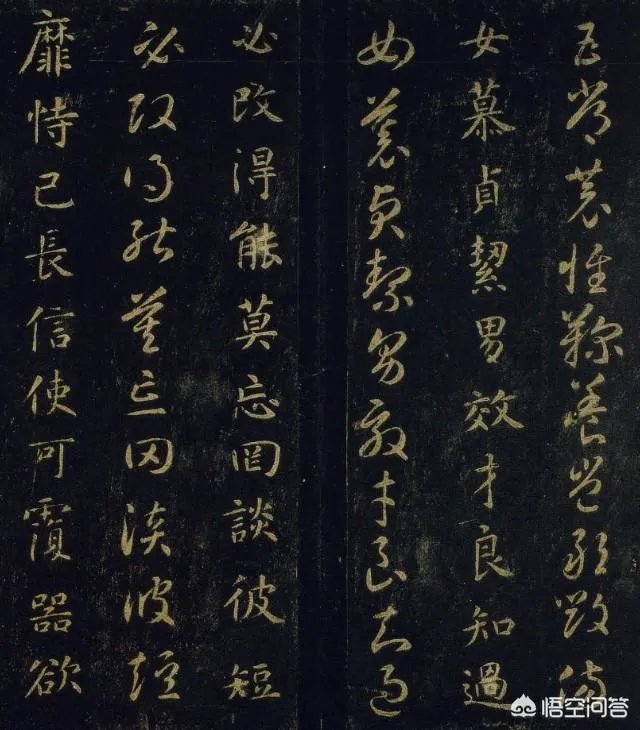 五常恭惟鞠養豈敢毀傷
女慕貞絜男效才良知過
女慕貞絜男效才良知過
必改得能莫忘罔談彼短
必改得能莫忘罔談彼短
靡恃己長信使可覆器欲
悟空问答